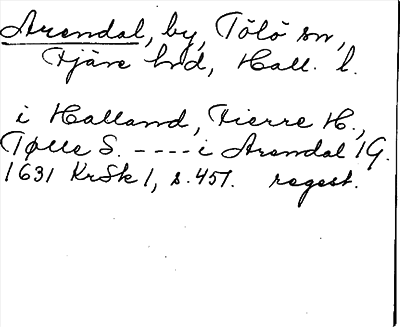 Arendal, by, Tölö sn,
Fjäre hd, Hall. l.
i Halland, Fierre H.,
Tølle S. ---- i Arendal 1G.
1631 KrSk 1, s. 457. regest.